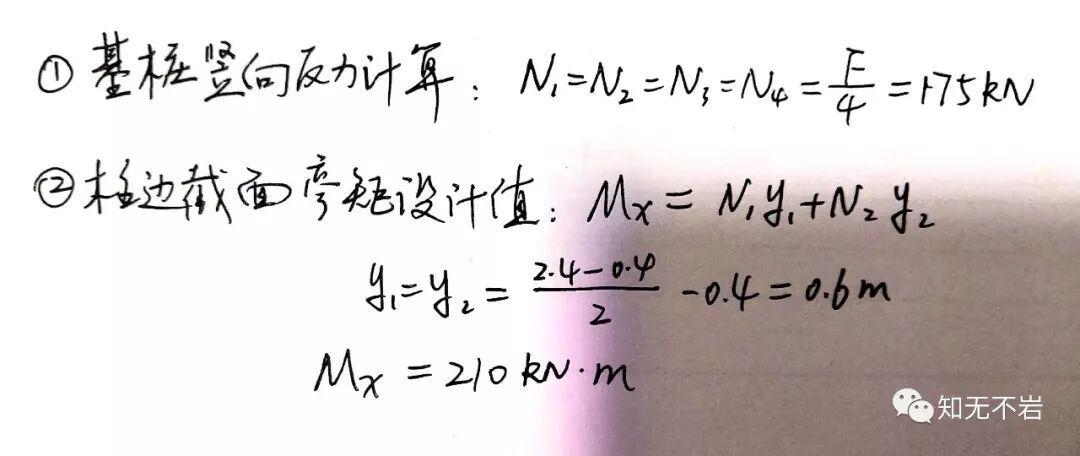 ① 基桩竖向反力计算: N₁=N₂=N₃=N₄=F/4=175kN
② 柱边截面弯矩设计值: Mx=N₁y₁+N₂y₂
y₁=y₂=(2.4-0.4)/2-0.4=0.6m
Mx=210kN·m
知无不岩